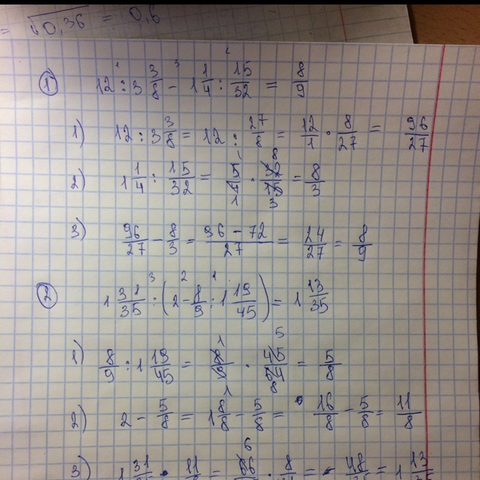 = √0,36 = 0,6
① 12 : 3 3/8 - 1 1/4 : 15/32 = 8/9
1) 12 : 3 3/8 = 12 : 27/8 = 12/1 · 8/27 = 96/27
2) 1 1/4 : 15/32 = 5/4 · 32/15 = 8/3
3) 96/27 - 8/3 = 96 - 72/27 = 24/27 = 8/9
② 1 31/35 · (2 - 8/9 : 1 19/45) = 1 13/35
1) 8/9 : 1 19/45 = 8/9 · 45/64 = 5/8
2) 2 - 5/8 = 1 8/8 - 5/8 = 16/8 - 5/8 = 11/8
3) 1 31 11 = 66 · 8 = 48 = 1 13/35